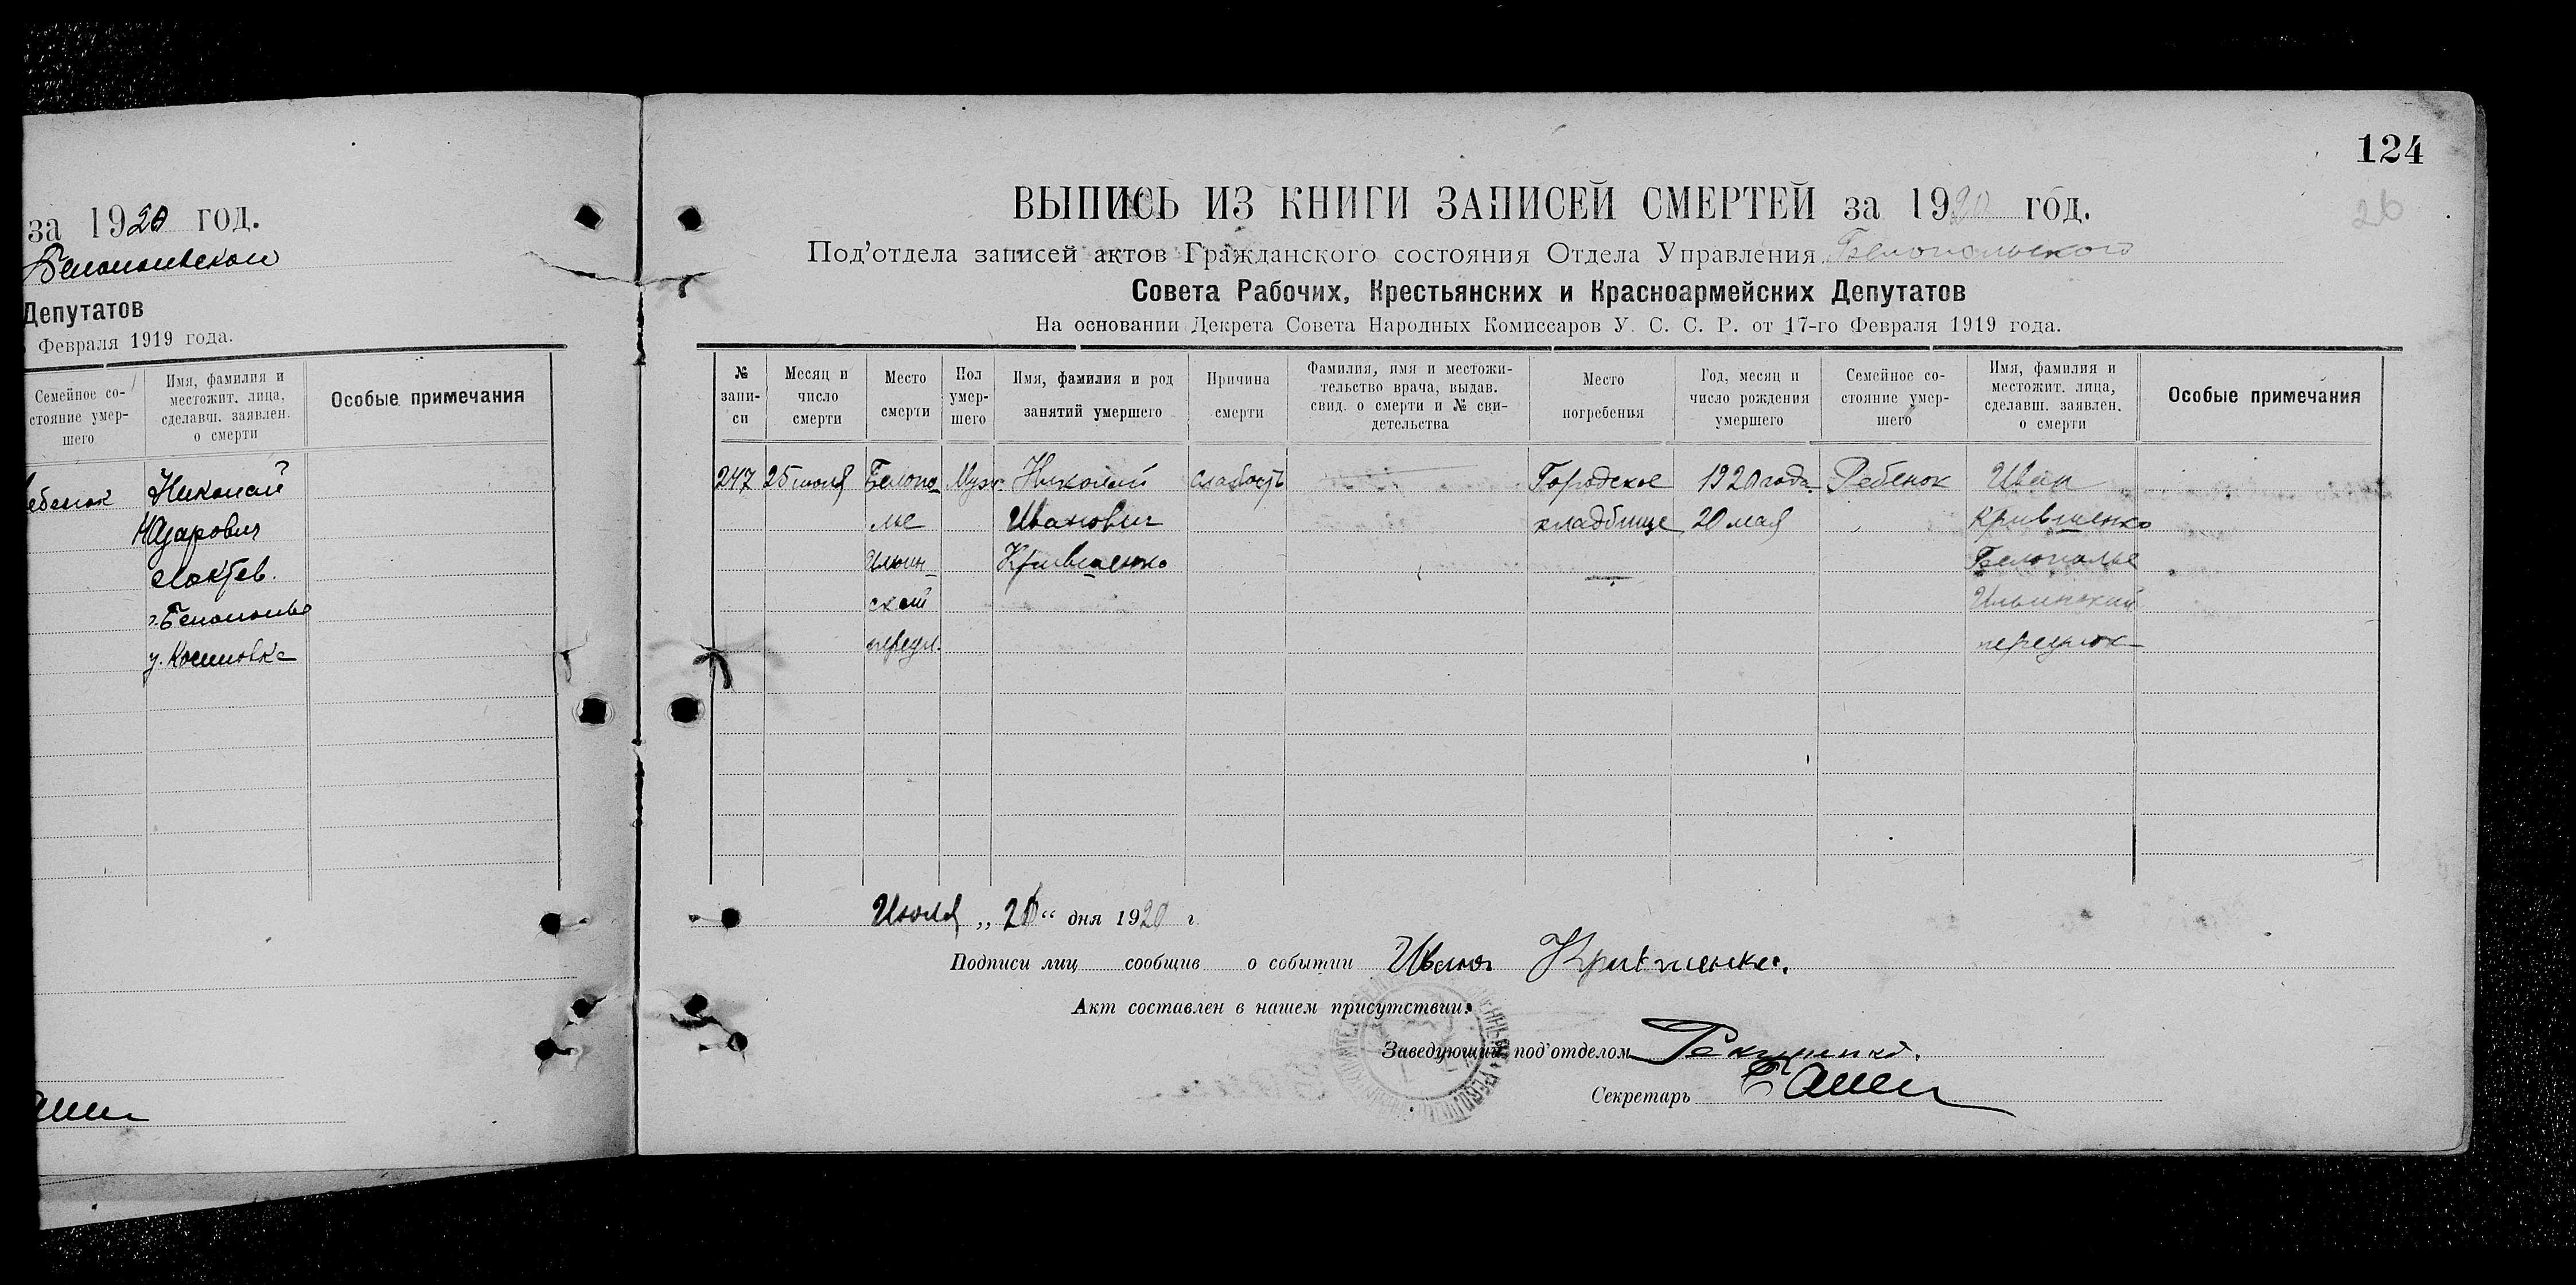 за 1920 год.
Белопольской
Депутатов
Февраля 1919 года.
Семейное со-
стояние умер-
шего
Имя, фамилия и
местожит. лица,
сделавш. заявлен.
о смерти
Особые примечания
ебенок
Николай
Лактев.
г. Белополье
124
26
ВЫПИСЬ ИЗ КНИГИ ЗАПИСЕЙ СМЕРТЕЙ за 1920 год.
Под'отдела записей актов Гражданского состояния Отдела Управления Белопольского
Совета Рабочих, Крестьянских и Красноармейских Депутатов
На основании Декрета Совета Народных Комиссаров У. С. С. Р. от 17-го Февраля 1919 года.
№
запи-
си
Месяц и
число
смерти
Место
смерти
Пол
умер-
шего
Имя, фамилия и род
занятий умершего
Причина
смерти
Фамилия, имя и местожи-
тельство врача, выдав.
свид. о смерти и № сви-
детельства
Место
погребения
Год, месяц и
число рождения
умершего
Семейное со-
стояние умер-
шего
Имя, фамилия и
местожит. лица,
сделавш. заявлен.
о смерти
Особые примечания
247
25 июля
Белопо
лье
Ильин-
ский
переул.
Муж.
Николай
Иванович
Крившенко
слабость
Городское
кладбище
1920 года
20 мая
Ребенок
Иван
Крившенко
Белополье
Ильинский
переулок
Июля „ 26 “ дня 1920 г.
Подписи лиц сообщив о событии Иван Крившенко.
Акт составлен в нашем присутствии:
Заведующий под'отделом
Секретарь